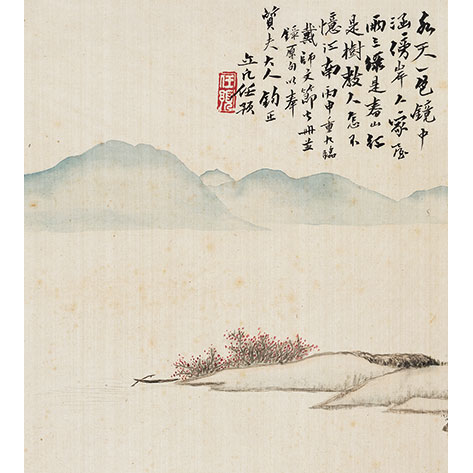 水天一色鏡中
涵傍岸人家屋
兩三綠是春山紅
是樹教人怎不
憶江南丙申重九臨
戴師文節公冊並
錄原句以奉
質夫大人鈞正
立凡任預
任預